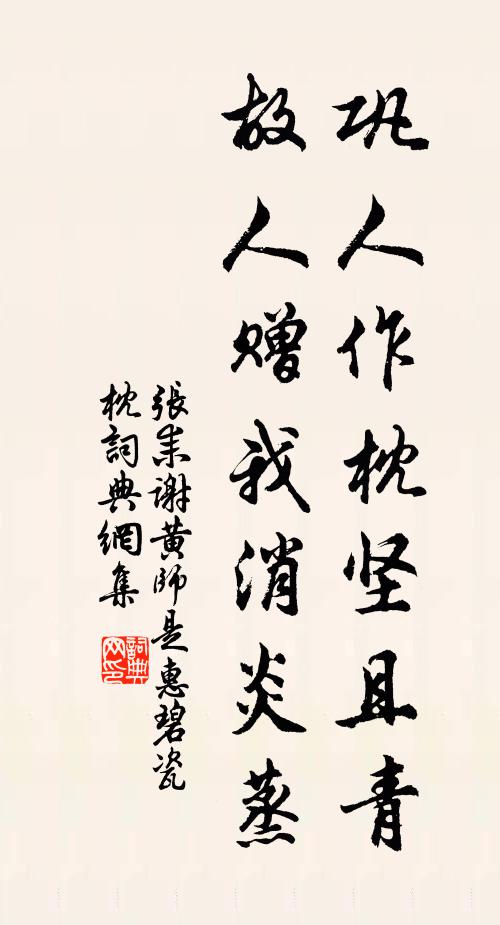 巩人作枕坚且青
故人赠我消炎蒸
張耒谢黄師是惠碧瓷
枕詞典網集
詞典
网印